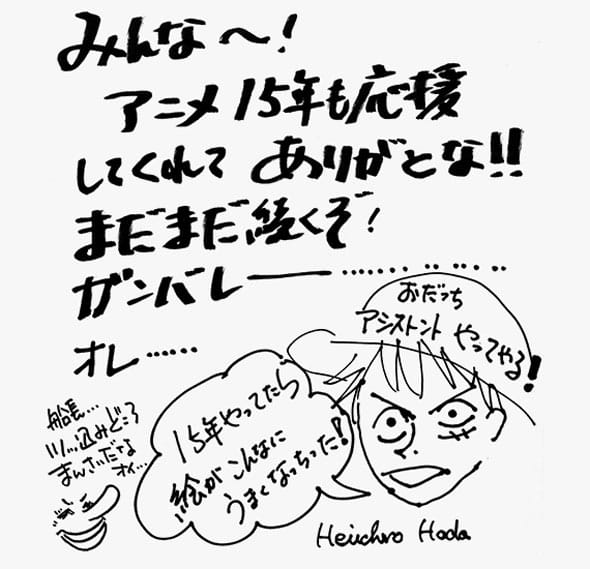 みんな〜!
アニメ15年も応援
してくれて ありがとな!!
まだまだ続くぞ!
ガンバレー……………
オレ……
おだっち
アシストント やってやる!
15年やってたら
絵がこんなに
うまくなっちった!
船長…
ツッ…込みどころ
まんさいだてな
オイ…
Heiichiro Hoda